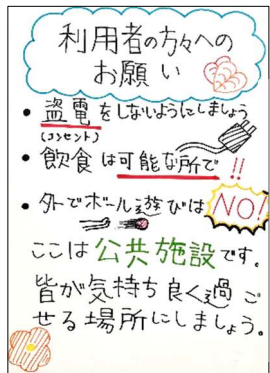 利用者の方々への
お願い
• 盗電をしないようにしましょう
(コンセント)
• 飲食は可能な所で!!
• 外でボール遊びは NO!
ここは公共施設です。
皆が気持ち良く過ご
せる場所にしましょう。